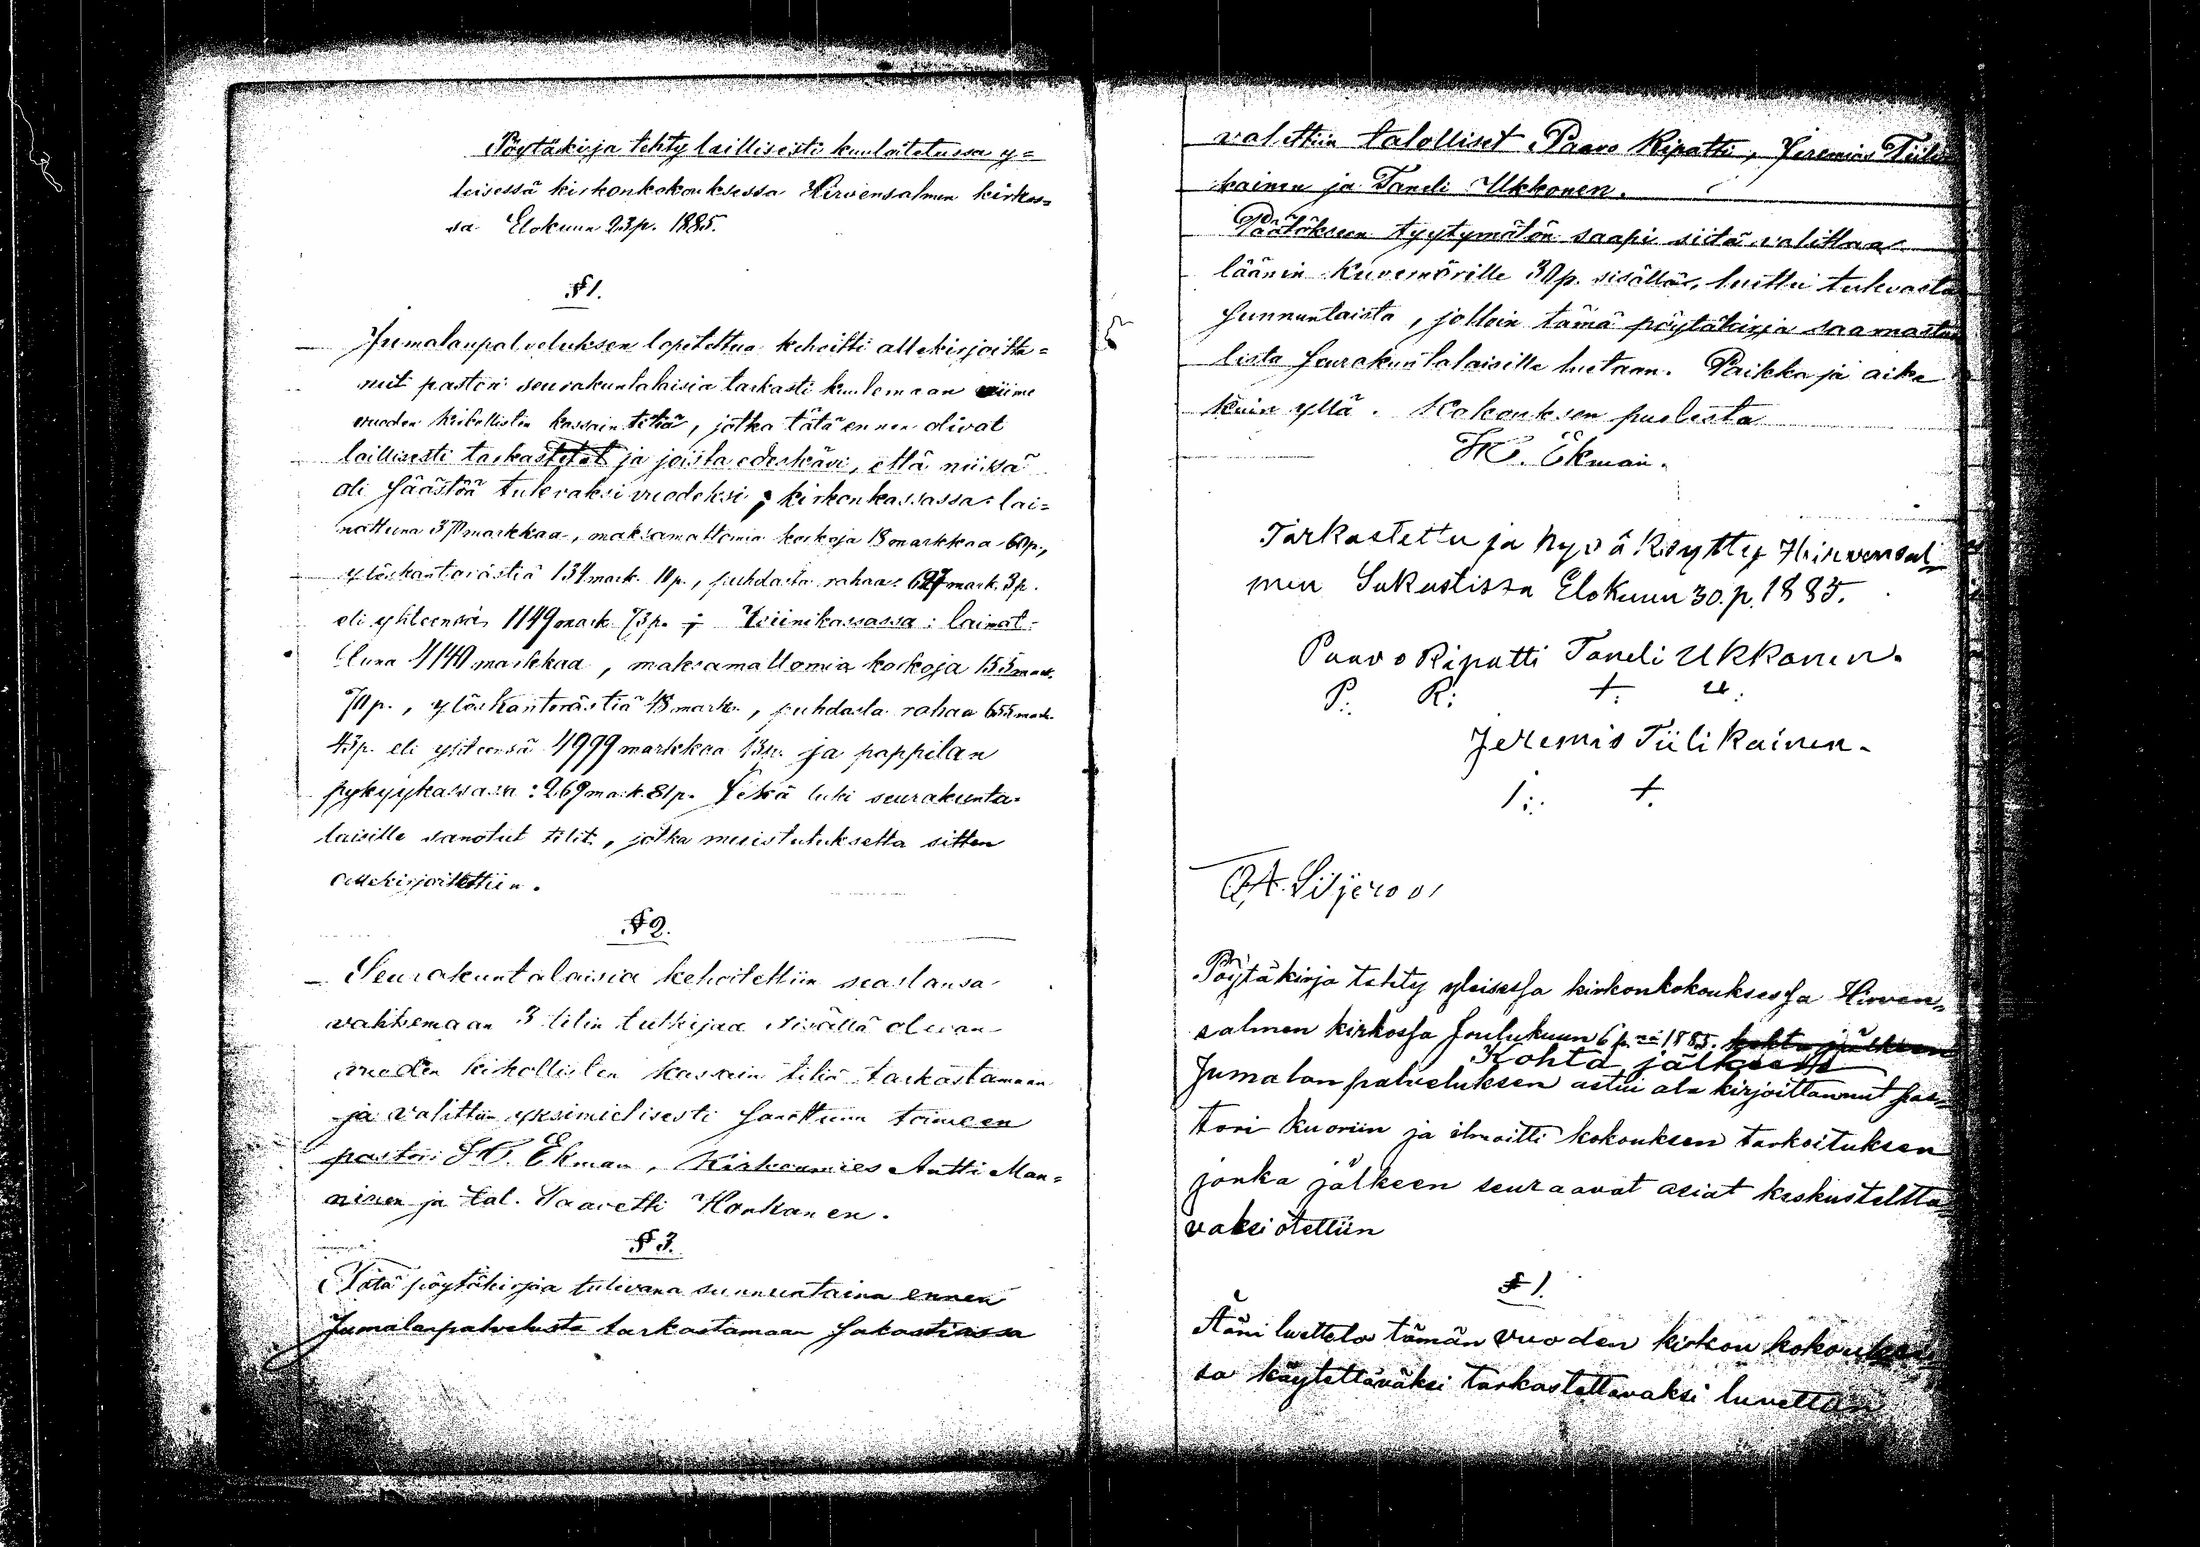 Pöytäkirja tehty laillisesti kuulutetussa y=
leisessä kirkonkokouksessa Hirvensalmen kirkos=
sa Elokuun 23 p. 1885.
§ 1.
Jumalanpalveluksen lopetettua kehoitti allekirjoitta=
nut pastori seurakuntalaisia tarkasti kuulemaan viime
vuoden kirkollisten kassain tiliä, jotka tätä ennen olivat
laillisesti tarkastetut ja joista edeskävi, että niissä
oli säästöä tulevaksi vuodeksi; kirkonkassassa: lai=
nattuna 370 markkaa, maksamattomia korkoja 18 markkaa 60 p.,
ylöskantorästiä 134 mark. 10 p., puhdasta rahaa: 627 mark. 3 p.
eli yhteensä 1149 mark 73 p.; Viinikassassa: lainat=
tuna 4140 markkaa, maksamattomia korkoja 155 mark.
70 p., ylöskantorästiä 48 mark., puhdasta rahaa 655 mark.
43 p. eli yhteensä 4999 markkaa 13 p. ja pappilan
: 269 mark. 81 p. luki seurakunta=
laisille sanotut tilit, jotka muistutuksetta sitten
allekirjoitettiin.
§ 2.
Seurakuntalaisia kehoitettiin seastansa
valitsemaan 3 tilin tutkijaa sisällä olevan
vuoden kirkollisten kassain tiliä tarkastamaan
ja valittiin yksimielisesti sanottuun toimeen
pastori K. Ekman, Kirkonmies Antti Man=
ninen ja tal. Taavetti Honkanen.
§ 3.
Tätä pöytäkirjaa tulevana sunnuntaina ennen
Jumalanpalvelusta tarkastamaan sakastissa
valittiin talolliset Paavo Ripatti, Jeremias Tiili
kainen ja Taneli Ukkonen.
Päätökseen tyytymätön saapi siitä valittaa
läänin Kuvernörille 30 p. sisällä, luettu tulevasta
sunnuntaista, jolloin tämä pöytäkirja saarnastuo
lista seurakuntalaisille luetaan. Paikka ja aika
kuin yllä. Kokouksen puolesta
K. Ekman.
Tarkastettu ja hyvä Ksytty Hirvensal
men Sakastissa Elokuun 30. p. 1885.
Paavo Ripatti Taneli Ukkonen.
P: R: +: U:
Jeremis Tiilikainen.
I: +.
Pöytäkirja tehty yleisessa kirkonkokouksessa Hirven=
salmen kirkossa Joulukuun 6 p:nä 1885. kohta jälkeen
Kohta jälkeen
Jumalanpalveluksen astui ala kirjoittannut pas=
tori kuoriin ja ilmoitti kokouksen tarkoituksen
jonka jälkeen seuraavat asiat keskustelta=
vaksi otettiin
§ 1.
Ääni luettelo tämän vuoden kirkon kokouksis=
sa käytettäväksi tarkastettavaksi luvettiin